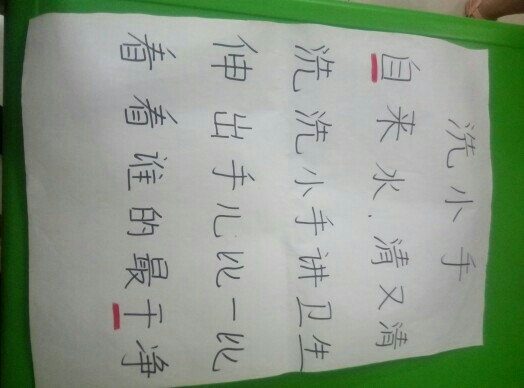 洗小手
自来水,清又清
洗洗小手讲卫生
伸出手儿比一比
着着谁的最干净